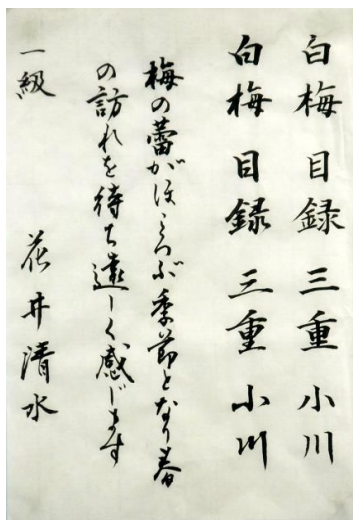 白梅 目録 三重 小川
白梅 目録 三重 小川
梅の蕾がほころぶ季節となり春
の訪れを待ち遠しく感じます
一級 花井清水